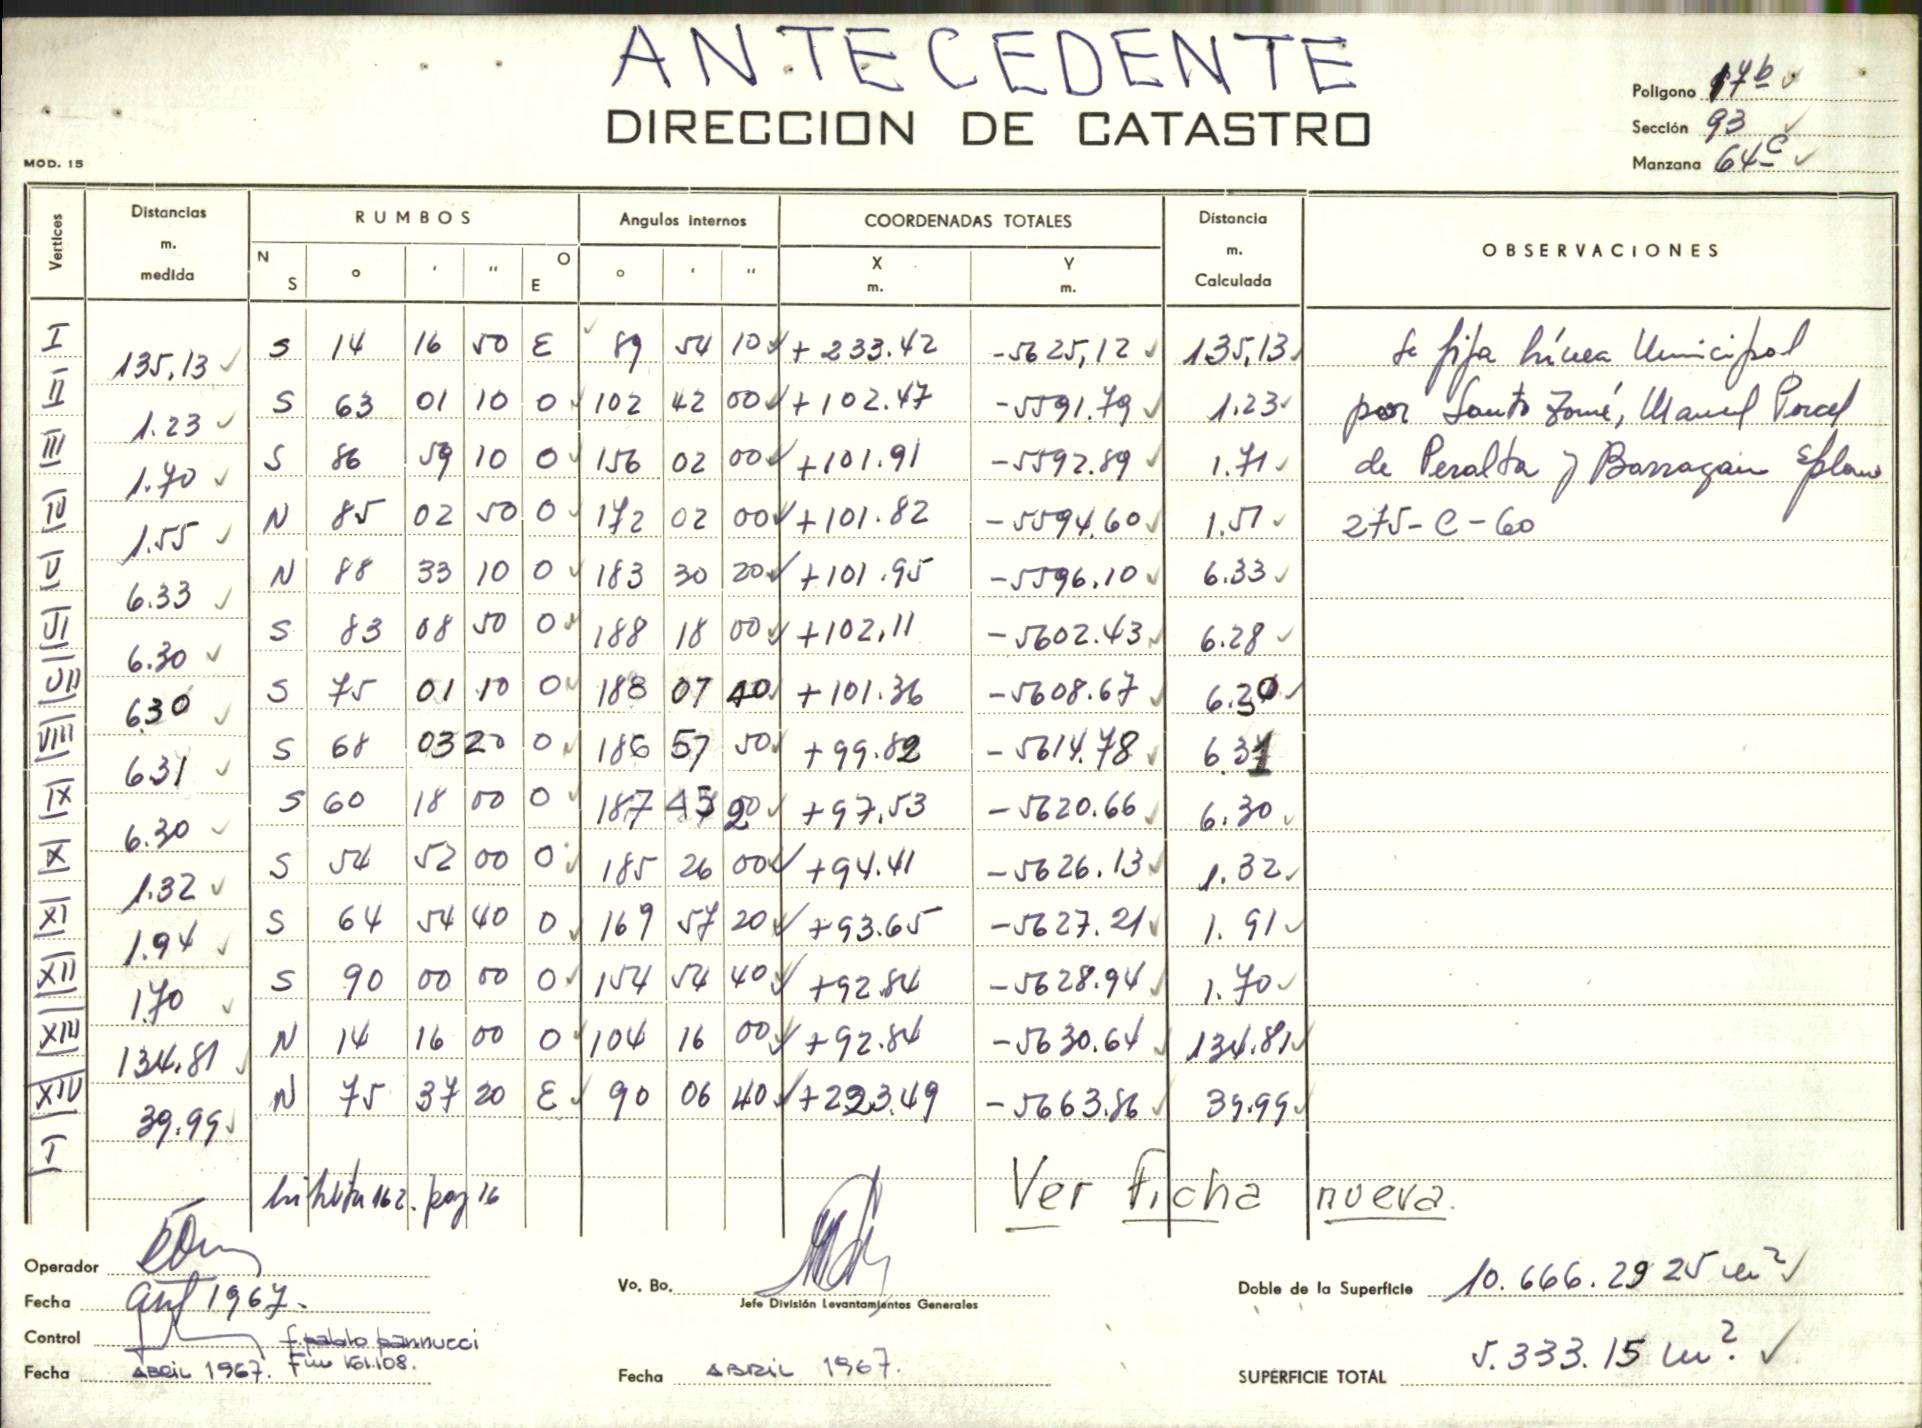 ANTECEDENTE
DIRECCION DE CATASTRO
Poligono 17b
Sección 93
Manzana 64c
MOD. 15
Vertices Distancias m. medida RUMBOS Angulos internos COORDENADAS TOTALES Distancia m. Calculada OBSERVACIONES
N S ° ' " O E ° ' " X m. Y m.
I S 14 16 50 E 89 54 10 + 233.42 -5625,12 135,13 Se fija Línea Municipal
135,13
II S 63 01 10 O 102 42 00 + 102.47 -5591.79 1.23 por Santo Tomé, Manuel Porcel
1.23
III S 86 59 10 O 156 02 00 +101.91 -5592.89 1.71 de Peralta y Barragan s/plano
1.70
IV N 85 02 50 O 172 02 00 +101.82 -5594.60 1.51 275-C-60
1.55
V N 88 33 10 O 183 30 20 +101.95 -5596.10 6.33
6.33
VI S 83 08 50 O 188 18 00 +102,11 -5602.43 6.28
6.30
VII S 75 01 10 O 188 07 40 +101.36 -5608.67 6.30
6.30
VIII S 68 03 20 O 186 57 50 +99.82 -5614.78 6.31
6.31
IX S 60 18 00 O 187 45 20 +97.53 -5620.66 6.30
6.30
X S 54 52 00 O 185 26 00 +94.41 -5626.13 1.32
1.32
XI S 64 54 40 O 169 57 20 +93.65 -5627.21 1.91
1.94
XII S 90 00 00 O 154 54 40 +92.84 -5628.94 1.70
1.70
XIII N 14 16 00 O 104 16 00 +92.84 -5630.64 134.81
134.81
XIV N 75 37 20 E 90 06 40 +223.49 -5663.86 39.99
39.99
I
162. pag 16
Ver ficha nueva.
Operador
Fecha 1967.
Control
f. pablo pannucci
Fecha ABRIL 1967. 161.108.
Vo. Bo.
Jefe División Levantamientos Generales
Fecha ABRIL 1967.
Doble de la Superficie 10.666.29 25 m2
SUPERFICIE TOTAL 5.333.15 m2.